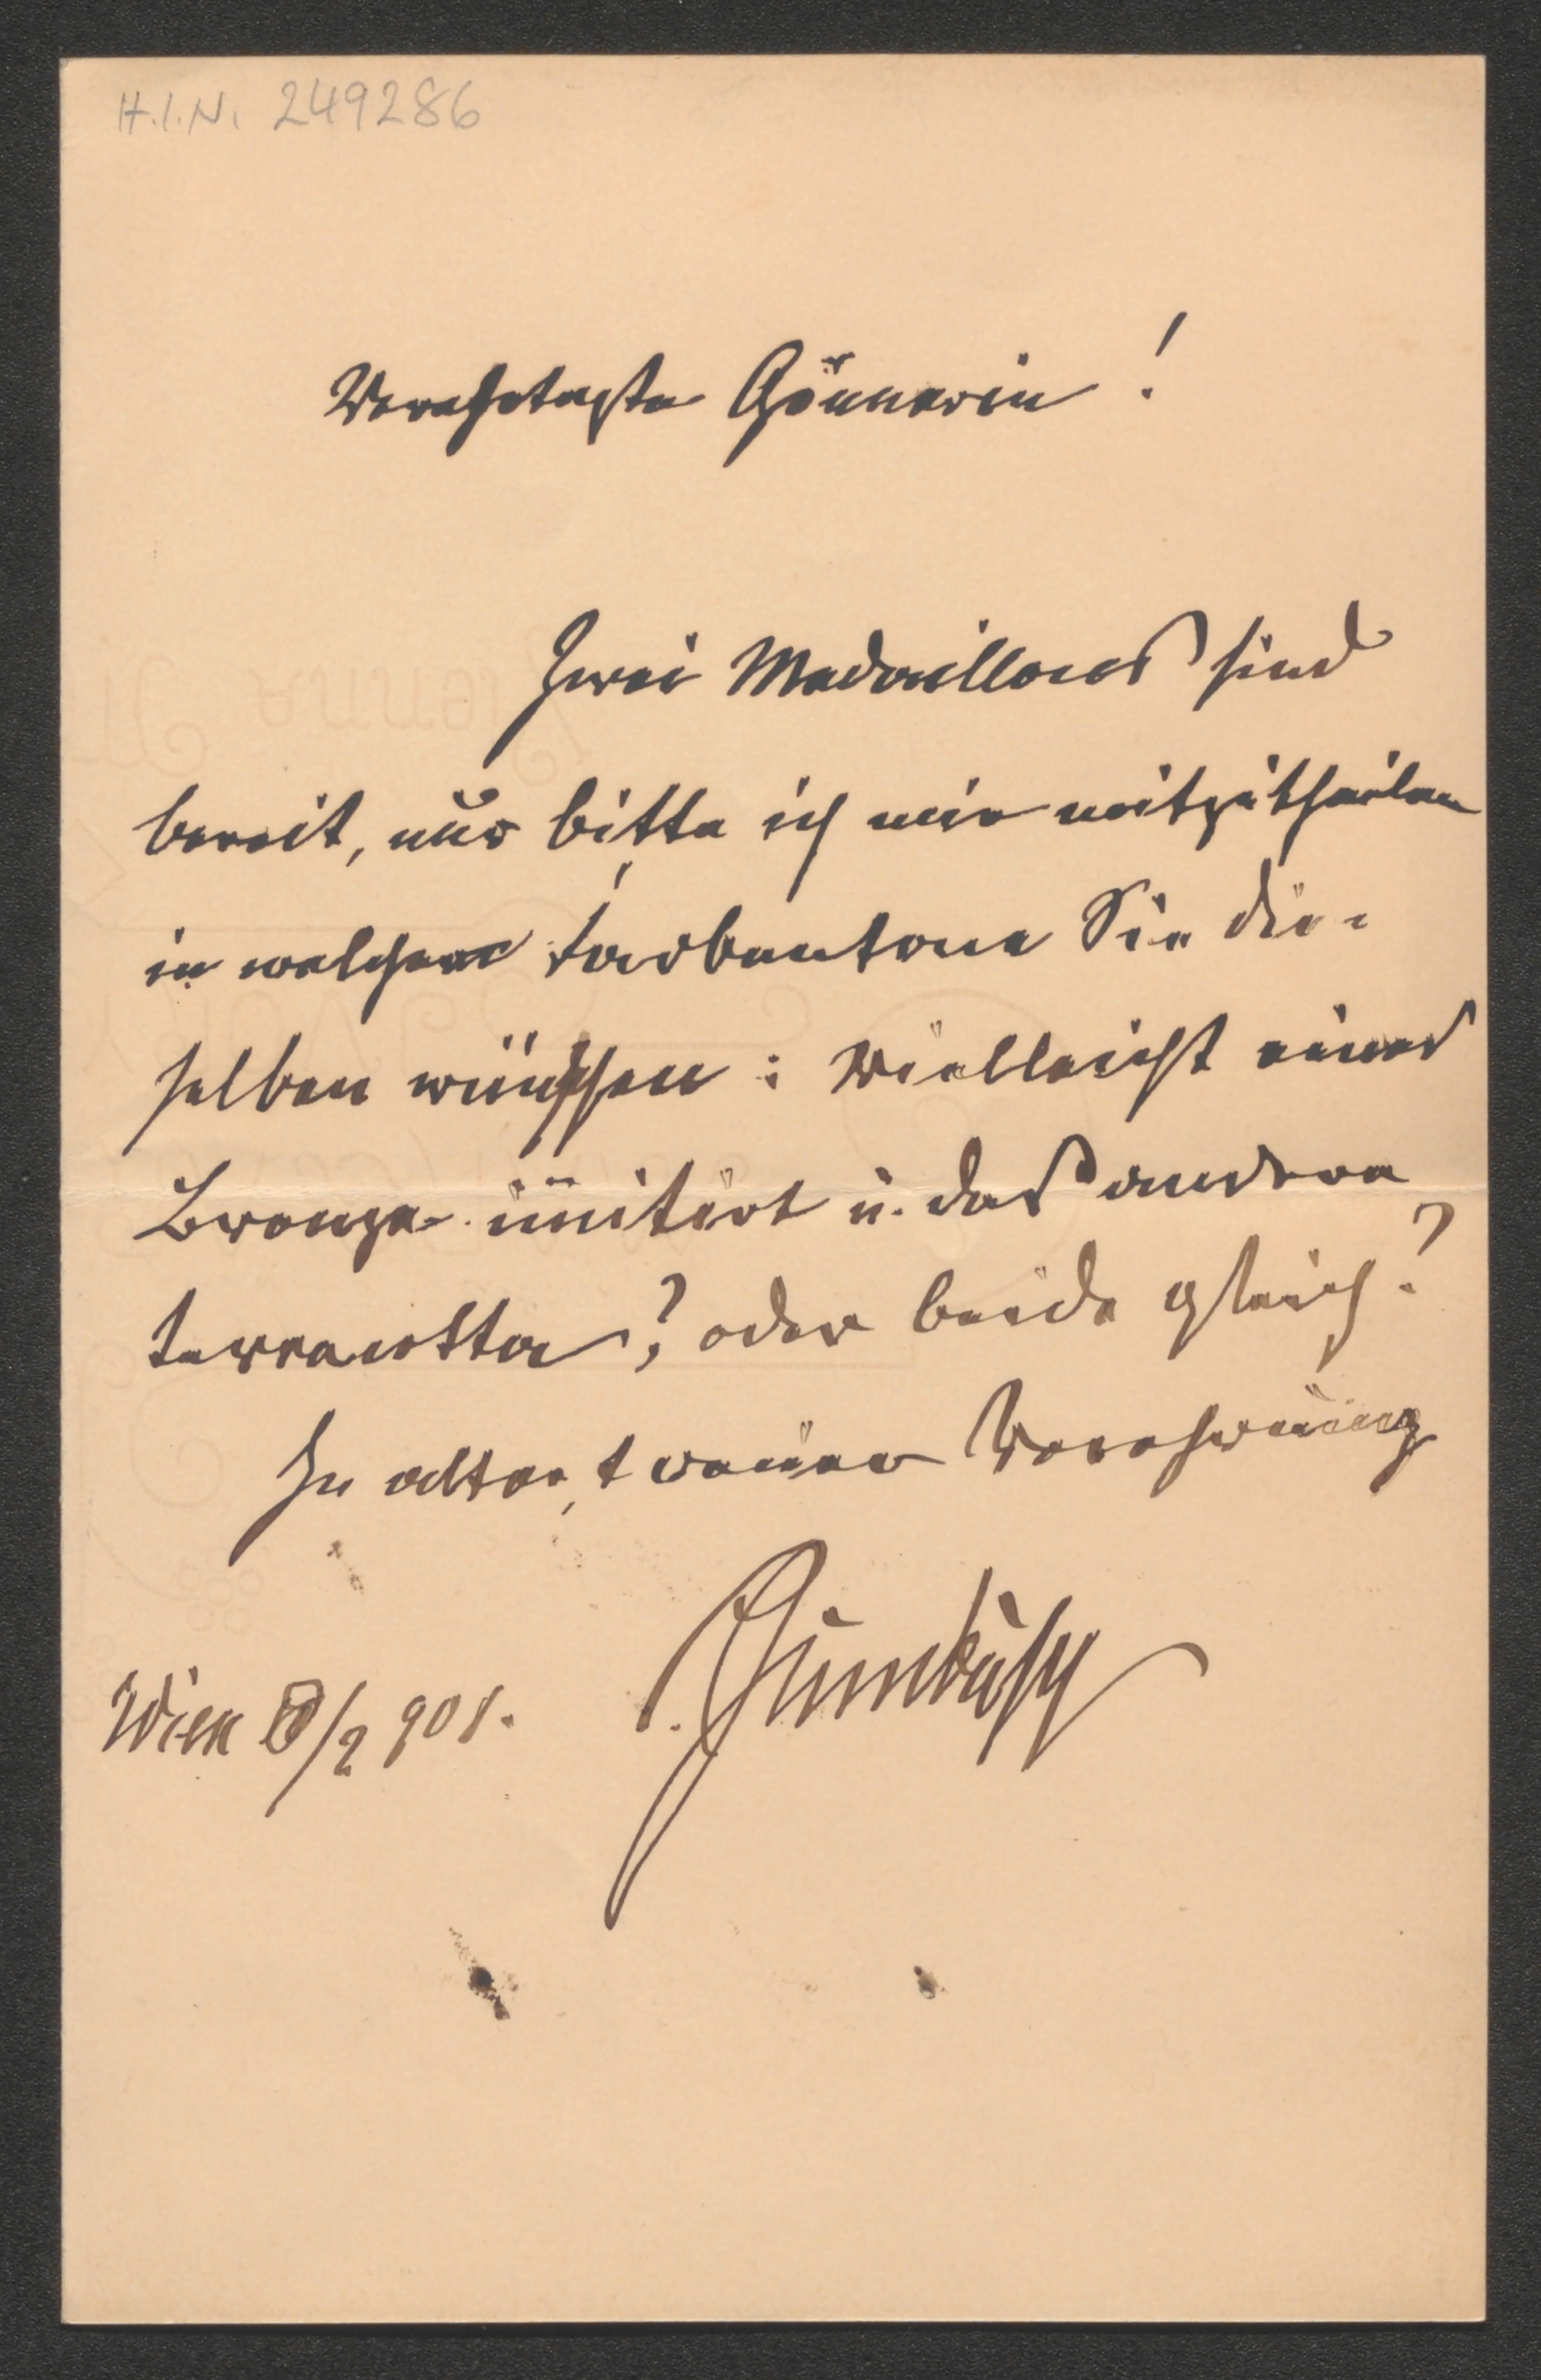 H.I.N. 249286
Verehrteste Gönnerin!
Zwei Medaillons sind
bereit, nur bitte ich mir mitzutheilen
in welchem Farbentone Sie die-
selben wünschen: vielleicht eines
Bronze imitirt u. das andere
terracotta? oder beide gleich?
In alter, treuer Verehrung
Wien 8/2 901.